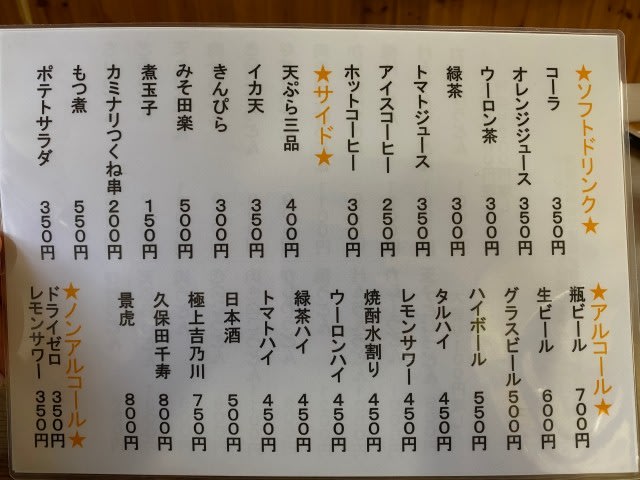 ★ソフトドリンク★
コーラ 350円
オレンジジュース 350円
ウーロン茶 300円
緑茶 300円
トマトジュース 350円
アイスコーヒー 250円
ホットコーヒー 300円
★サイド★
天ぷら三品 400円
イカ天 350円
きんぴら 300円
みそ田楽 500円
煮玉子 150円
カミナリつくね串 200円
もつ煮 550円
ポテトサラダ 350円
★アルコール★
瓶ビール 700円
生ビール 600円
グラスビール 500円
ハイボール 550円
タルハイ 450円
レモンサワー 450円
焼酎水割り 450円
ウーロンハイ 450円
緑茶ハイ 450円
トマトハイ 450円
日本酒 500円
極上吉乃川 750円
久保田千寿 800円
景虎 800円
★ノンアルコール★
ドライゼロ 350円
レモンサワー 350円